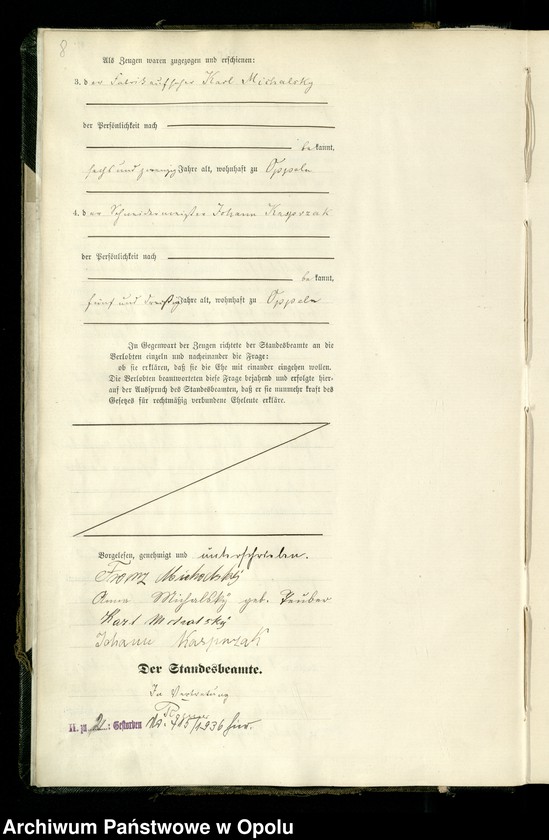 8
Als Zeugen waren zugezogen und erschienen:
3. der Fabrikaufseher Karl Michalsky
der Persönlichkeit nach
bekannt,
sechs und zwanzig Jahre alt, wohnhaft zu Oppeln
4. der Schneidermeister Johann Kasprzak
der Persönlichkeit nach
bekannt,
fünf und dreißig Jahre alt, wohnhaft zu Oppeln
In Gegenwart der Zeugen richtete der Standesbeamte an die
Verlobten einzeln und nacheinander die Frage:
ob sie erklären, daß sie die Ehe mit einander eingehen wollen.
Die Verlobten beantworteten diese Frage bejahend und erfolgte hier-
auf der Ausspruch des Standesbeamten, daß er sie nunmehr kraft des
Gesetzes für rechtmäßig verbundene Eheleute erkläre.
Vorgelesen, genehmigt und unterschrieben.
Franz Michalsky
Anna Michalsky geb. Teuber
Karl Michalsky
Johann Kasprzak
Der Standesbeamte.
In Vertretung
H. zu 2.: Gestorben Nr. /1936 hier.
Archiwum Państwowe w Opolu